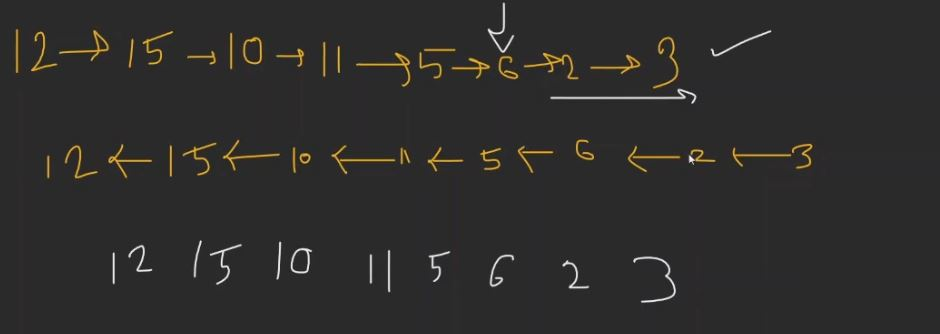 12 → 15 → 10 → 11 → 5 → 6 → 2 → 3 ✓
12 ← 15 ← 10 ← 11 ← 5 ← 6 ← 2 ← 3
12 15 10 11 5 6 2 3